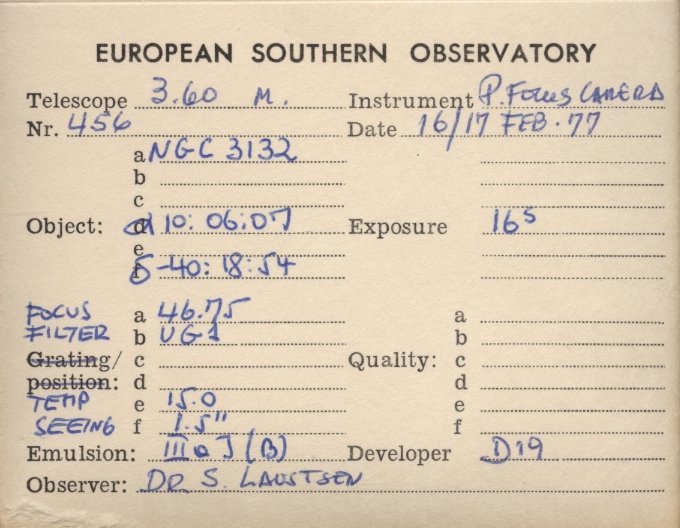 EUROPEAN SOUTHERN OBSERVATORY
Telescope 3.60 M. Instrument P. FOCUS CAMERA
Nr. 456 Date 16/17 FEB. 77
a NGC 3132
b
c
Object: d α 10: 06:07 Exposure 16s
e
f δ -40: 18:54
FOCUS a 46.75 a
FILTER b UG1 b
Grating/ c Quality: c
position: d d
TEMP e 15.0 e
SEEING f 1.5" f
Emulsion: III a J (B) Developer D19
Observer: DR S. LAUSTSEN